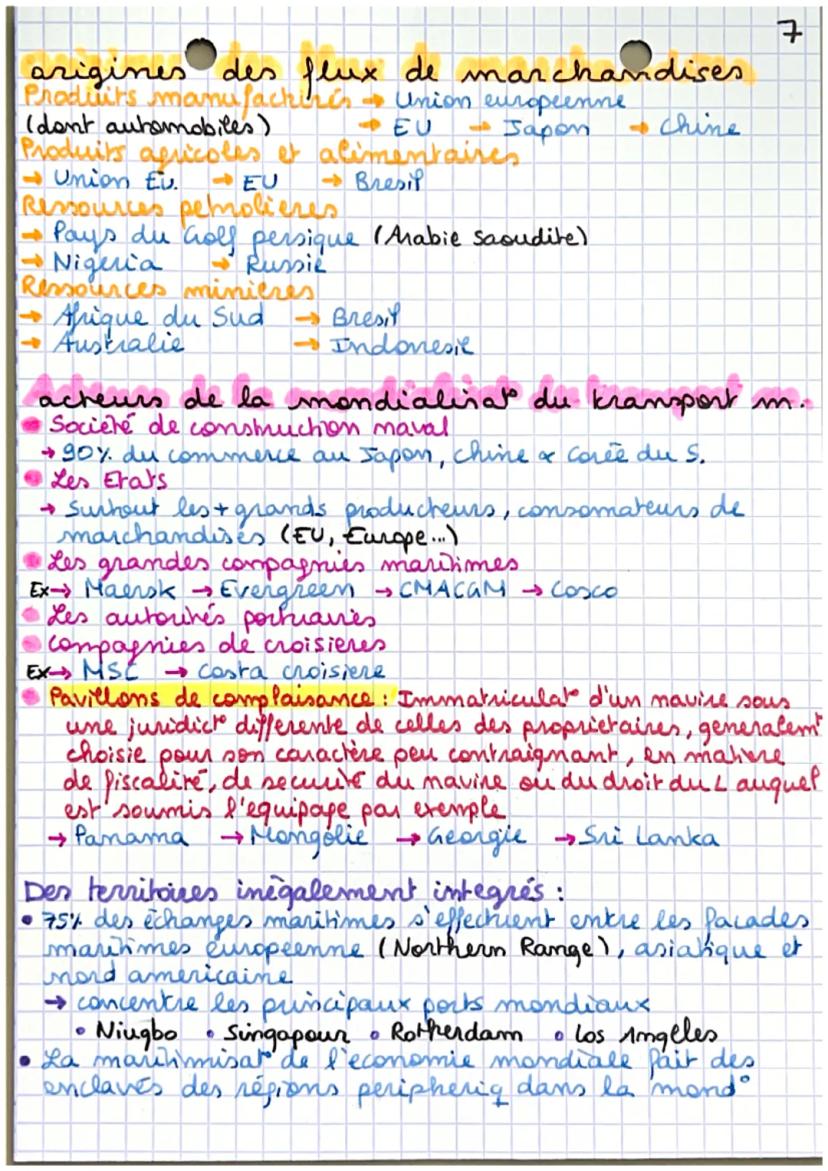 7
origines des flux de marchandises
Produits manufacturés → Union européenne
(dont automobiles) → EU → Japon → Chine
Produits agricoles et alimentaires
→ Union Eu. → EU → Bresil
Ressources petrolieres
→ Pays du Golf persique (Arabie Saoudite)
→ Nigeria → Russie
Ressources minieres
→ Afrique du Sud → Bresil
→ Australie → Indonesie
acteurs de la mondialisat° du transport m.
• Société de construction naval
→ 90% du commerce au Japon, Chine & Corée du S.
• Les Etats
→ Surtout les + grands producteurs, consomateurs de
marchandises (EU, Europe...)
• Les grandes compagnies maritimes
Ex → Maersk → Evergreen → CMACGM → Cosco
• Les autorités portuaires
• compagnies de croisieres
Ex → MSC → Costa croisiere
• Pavillons de complaisance : Immatriculat° d'un navire sous
une juridict° differente de celles des proprietaires, generalemt
choisie pour son caractère peu contraignant, en matiere
de fiscalité, de securité du navire ou du droit du L auquel
est soumis l'equipage par exemple
→ Panama → Mongolie → Georgie → Sri Lanka
Des territoires inégalement integrés :
• 75% des échanges maritimes s'effectuent entre les facades
maritimes européenne (Northern Range), asiatique et
nord americaine
→ concentre les principaux ports mondiaux
• Niugbo • Singapour • Rotherdam • Los Angeles
• La maritimisat° de l'economie mondiale fait des
enclaves des régions peripheriq dans la mond°